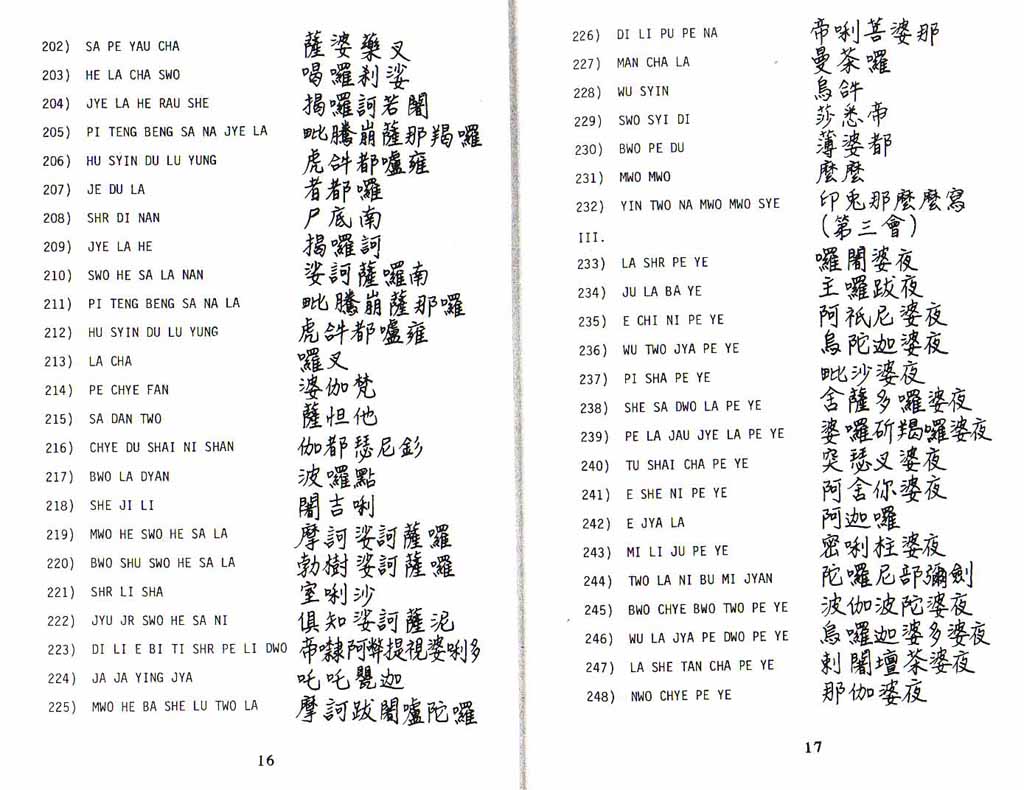 202) SA PE YAU CHA 薩婆藥叉
203) HE LA CHA SWO 喝囉剎娑
204) JYE LA HE RAU SHE 揭囉訶若闍
205) PI TENG BENG SA NA JYE LA 毗騰崩薩那羯囉
206) HU SYIN DU LU YUNG 虎𤙖都嚧雍
207) JE DU LA 者都囉
208) SHR DI NAN 尸底南
209) JYE LA HE 揭囉訶
210) SWO HE SA LA NAN 娑訶薩囉南
211) PI TENG BENG SA NA LA 毗騰崩薩那囉
212) HU SYIN DU LU YUNG 虎𤙖都嚧雍
213) LA CHA 囉叉
214) PE CHYE FAN 婆伽梵
215) SA DAN TWO 薩怛他
216) CHYE DU SHAI NI SHAN 伽都瑟尼釤
217) BWO LA DYAN 波囉點
218) SHE JI LI 闍吉唎
219) MWO HE SWO HE SA LA 摩訶娑訶薩囉
220) BWO SHU SWO HE SA LA 勃樹娑訶薩囉
221) SHR LI SHA 室唎沙
222) JYU JR SWO HE SA NI 俱知娑訶薩泥
223) DI LI E BI TI SHR PE LI DWO 帝㘑阿弊提視婆唎多
224) JA JA YING JYA 吒吒甖迦
225) MWO HE BA SHE LU TWO LA 摩訶跋闍嚧陀囉
16
226) DI LI PU PE NA 帝唎菩婆那
227) MAN CHA LA 曼茶囉
228) WU SYIN 烏𤙖
229) SWO SYI DI 莎悉帝
230) BWO PE DU 薄婆都
231) MWO MWO 麼麼
232) YIN TWO NA MWO MWO SYE 印兎那麼麼寫
III. (第三會)
233) LA SHR PE YE 囉闍婆夜
234) JU LA BA YE 主囉跋夜
235) E CHI NI PE YE 阿祇尼婆夜
236) WU TWO JYA PE YE 烏陀迦婆夜
237) PI SHA PE YE 毗沙婆夜
238) SHE SA DWO LA PE YE 舍薩多囉婆夜
239) PE LA JAU JYE LA PE YE 婆囉斫羯囉婆夜
240) TU SHAI CHA PE YE 突瑟叉婆夜
241) E SHE NI PE YE 阿舍你婆夜
242) E JYA LA 阿迦囉
243) MI LI JU PE YE 密唎柱婆夜
244) TWO LA NI BU MI JYAN 陀囉尼部彌劍
245) BWO CHYE BWO TWO PE YE 波伽波陀婆夜
246) WU LA JYA PE DWO PE YE 烏囉迦婆多婆夜
247) LA SHE TAN CHA PE YE 剌闍壇茶婆夜
248) NWO CHYE PE YE 那伽婆夜
17